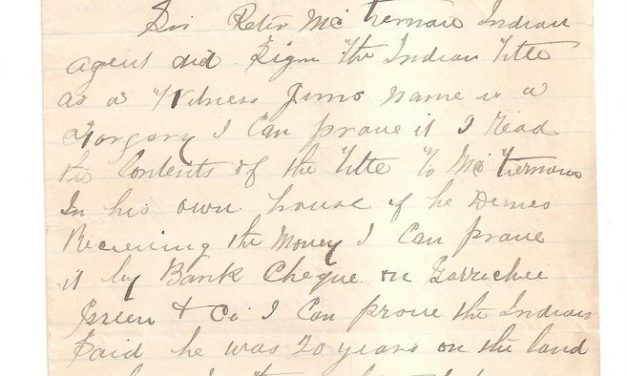 Sir Peter Mc Tiernan Indian
agent did Sign the Indian Title
as a Witness Jims name is a
Forgary I Can prove it I Read
the Contents of the Title To Mc Tiernan
In his own house if he Denies
Recieving the Money I Can prove
it by Bank Cheque on Garrichee
Green & Co I Can prove the Indian
Said he was 20 years on the land